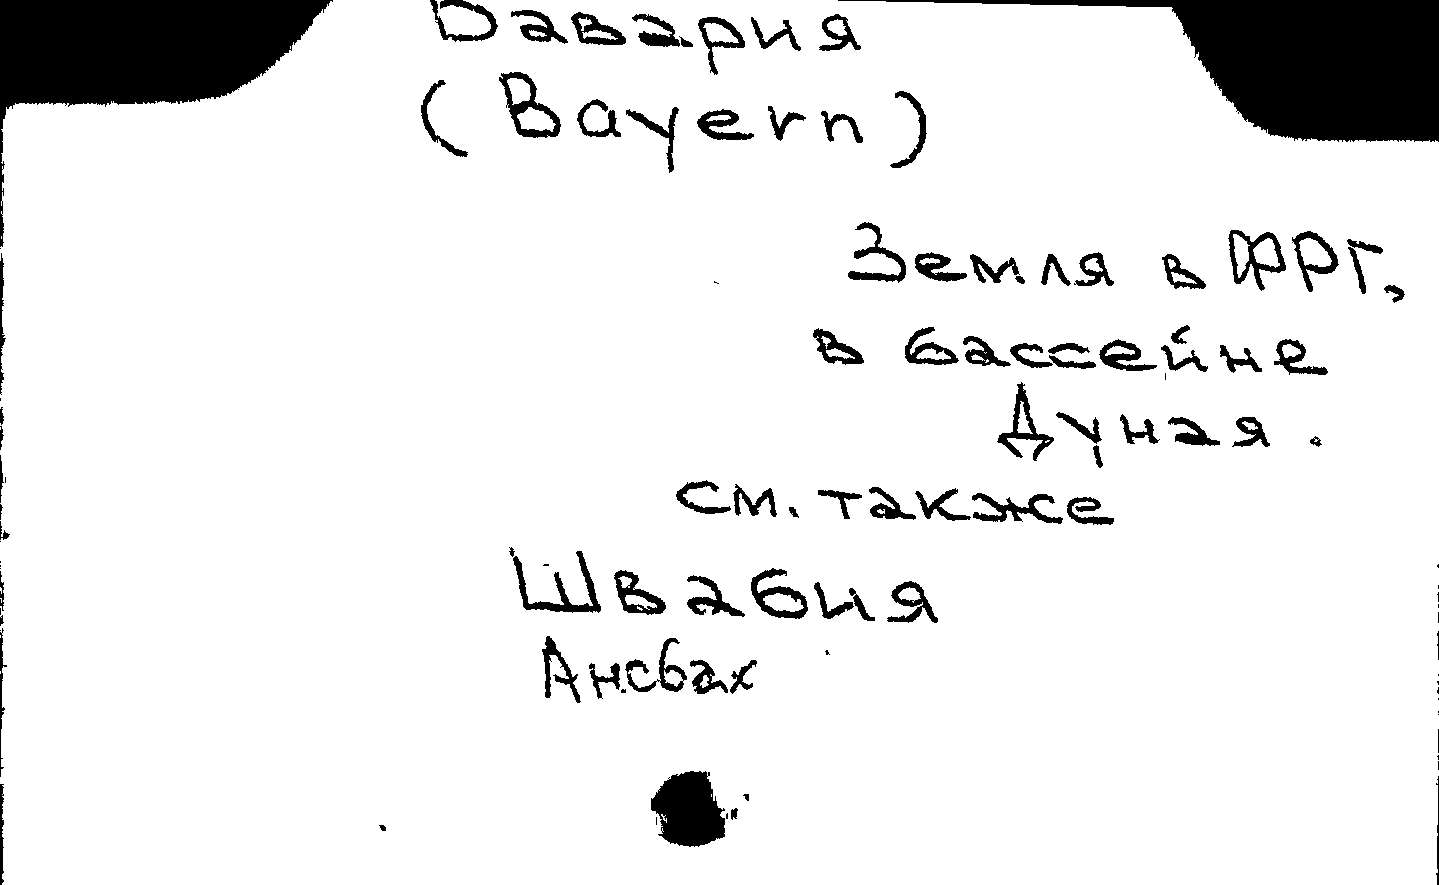 Бавария
(Bayern)
Земля в ФРГ,
в бассейне
Дуная.
см. также
Швабия
Ансбах